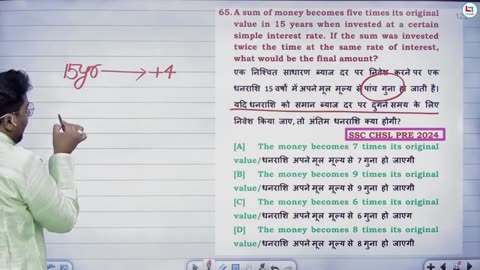 65. A sum of money becomes five times its original
value in 15 years when invested at a certain
simple interest rate. If the sum was invested
twice the time at the same rate of interest,
what would be the final amount?
एक निश्चित साधारण ब्याज दर पर निवेश करने पर एक
धनराशि 15 वर्षों में अपने मूल मूल्य से पांच गुना हो जाती है।
यदि धनराशि को समान ब्याज दर पर दुगने समय के लिए
निवेश किया जाए, तो अंतिम धनराशि क्या होगी?
SSC CHSL PRE 2024
[A] The money becomes 7 times its original
value/धनराशि अपने मूल मूल्य से 7 गुना हो जाएगी
[B] The money becomes 9 times its original
value/धनराशि अपने मूल मूल्य से 9 गुना हो जाएगी
[C] The money becomes 6 times its original
value/धनराशि अपने मूल मूल्य से 6 गुना हो जाएग
[D] The money becomes 8 times its original
value/धनराशि अपने मूल मूल्य से 8 गुना हो जाएगी
15yr → +4